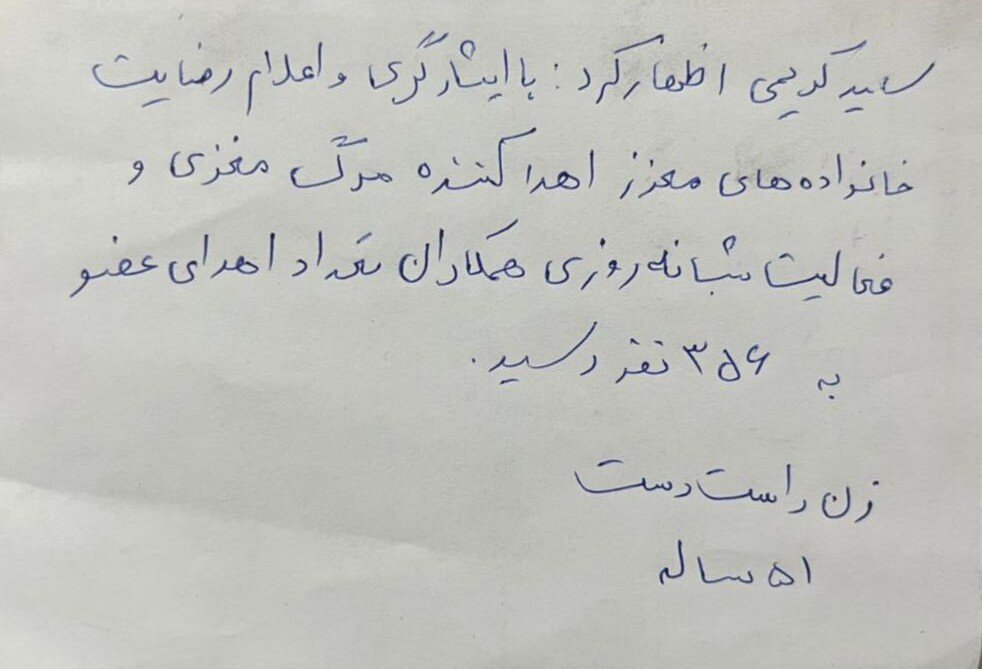 سعید کریمی اظهار کرد: با ایثارگری و اعلام رضایت
خانواده‌های معزز اهدا کننده مرگ مغزی و
فعالیت شبانه روزی همکاران تعداد اهدای عضو
به ۳۵۶ نفر رسید.
زن راست دست
۵۱ ساله